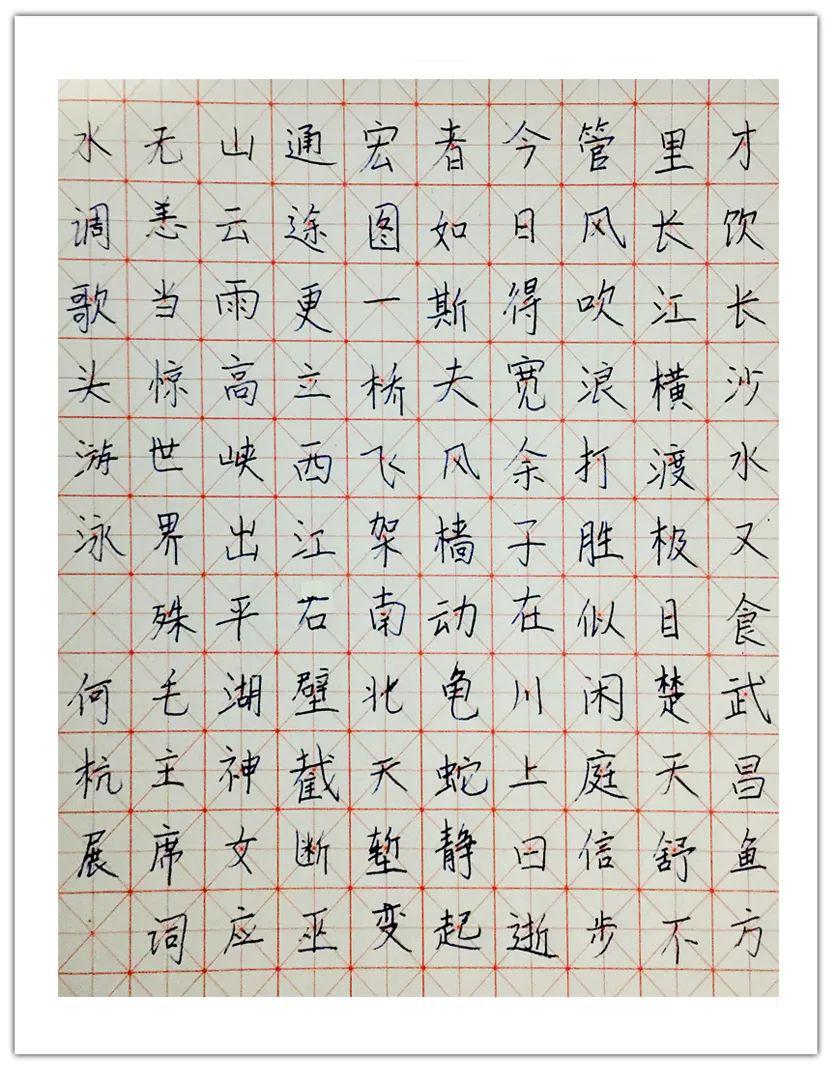 才饮长沙水又食武昌鱼方
里长江横渡极目楚天舒不
管风吹浪打胜似闲庭信步
今日得宽余子在川上曰逝
者如斯夫风樯动龟蛇静起
宏图一桥飞架南北天堑变
通途更立西江石壁截断巫
山云雨高峡出平湖神女应
无恙当惊世界殊毛主席词
水调歌头游泳 何杭展